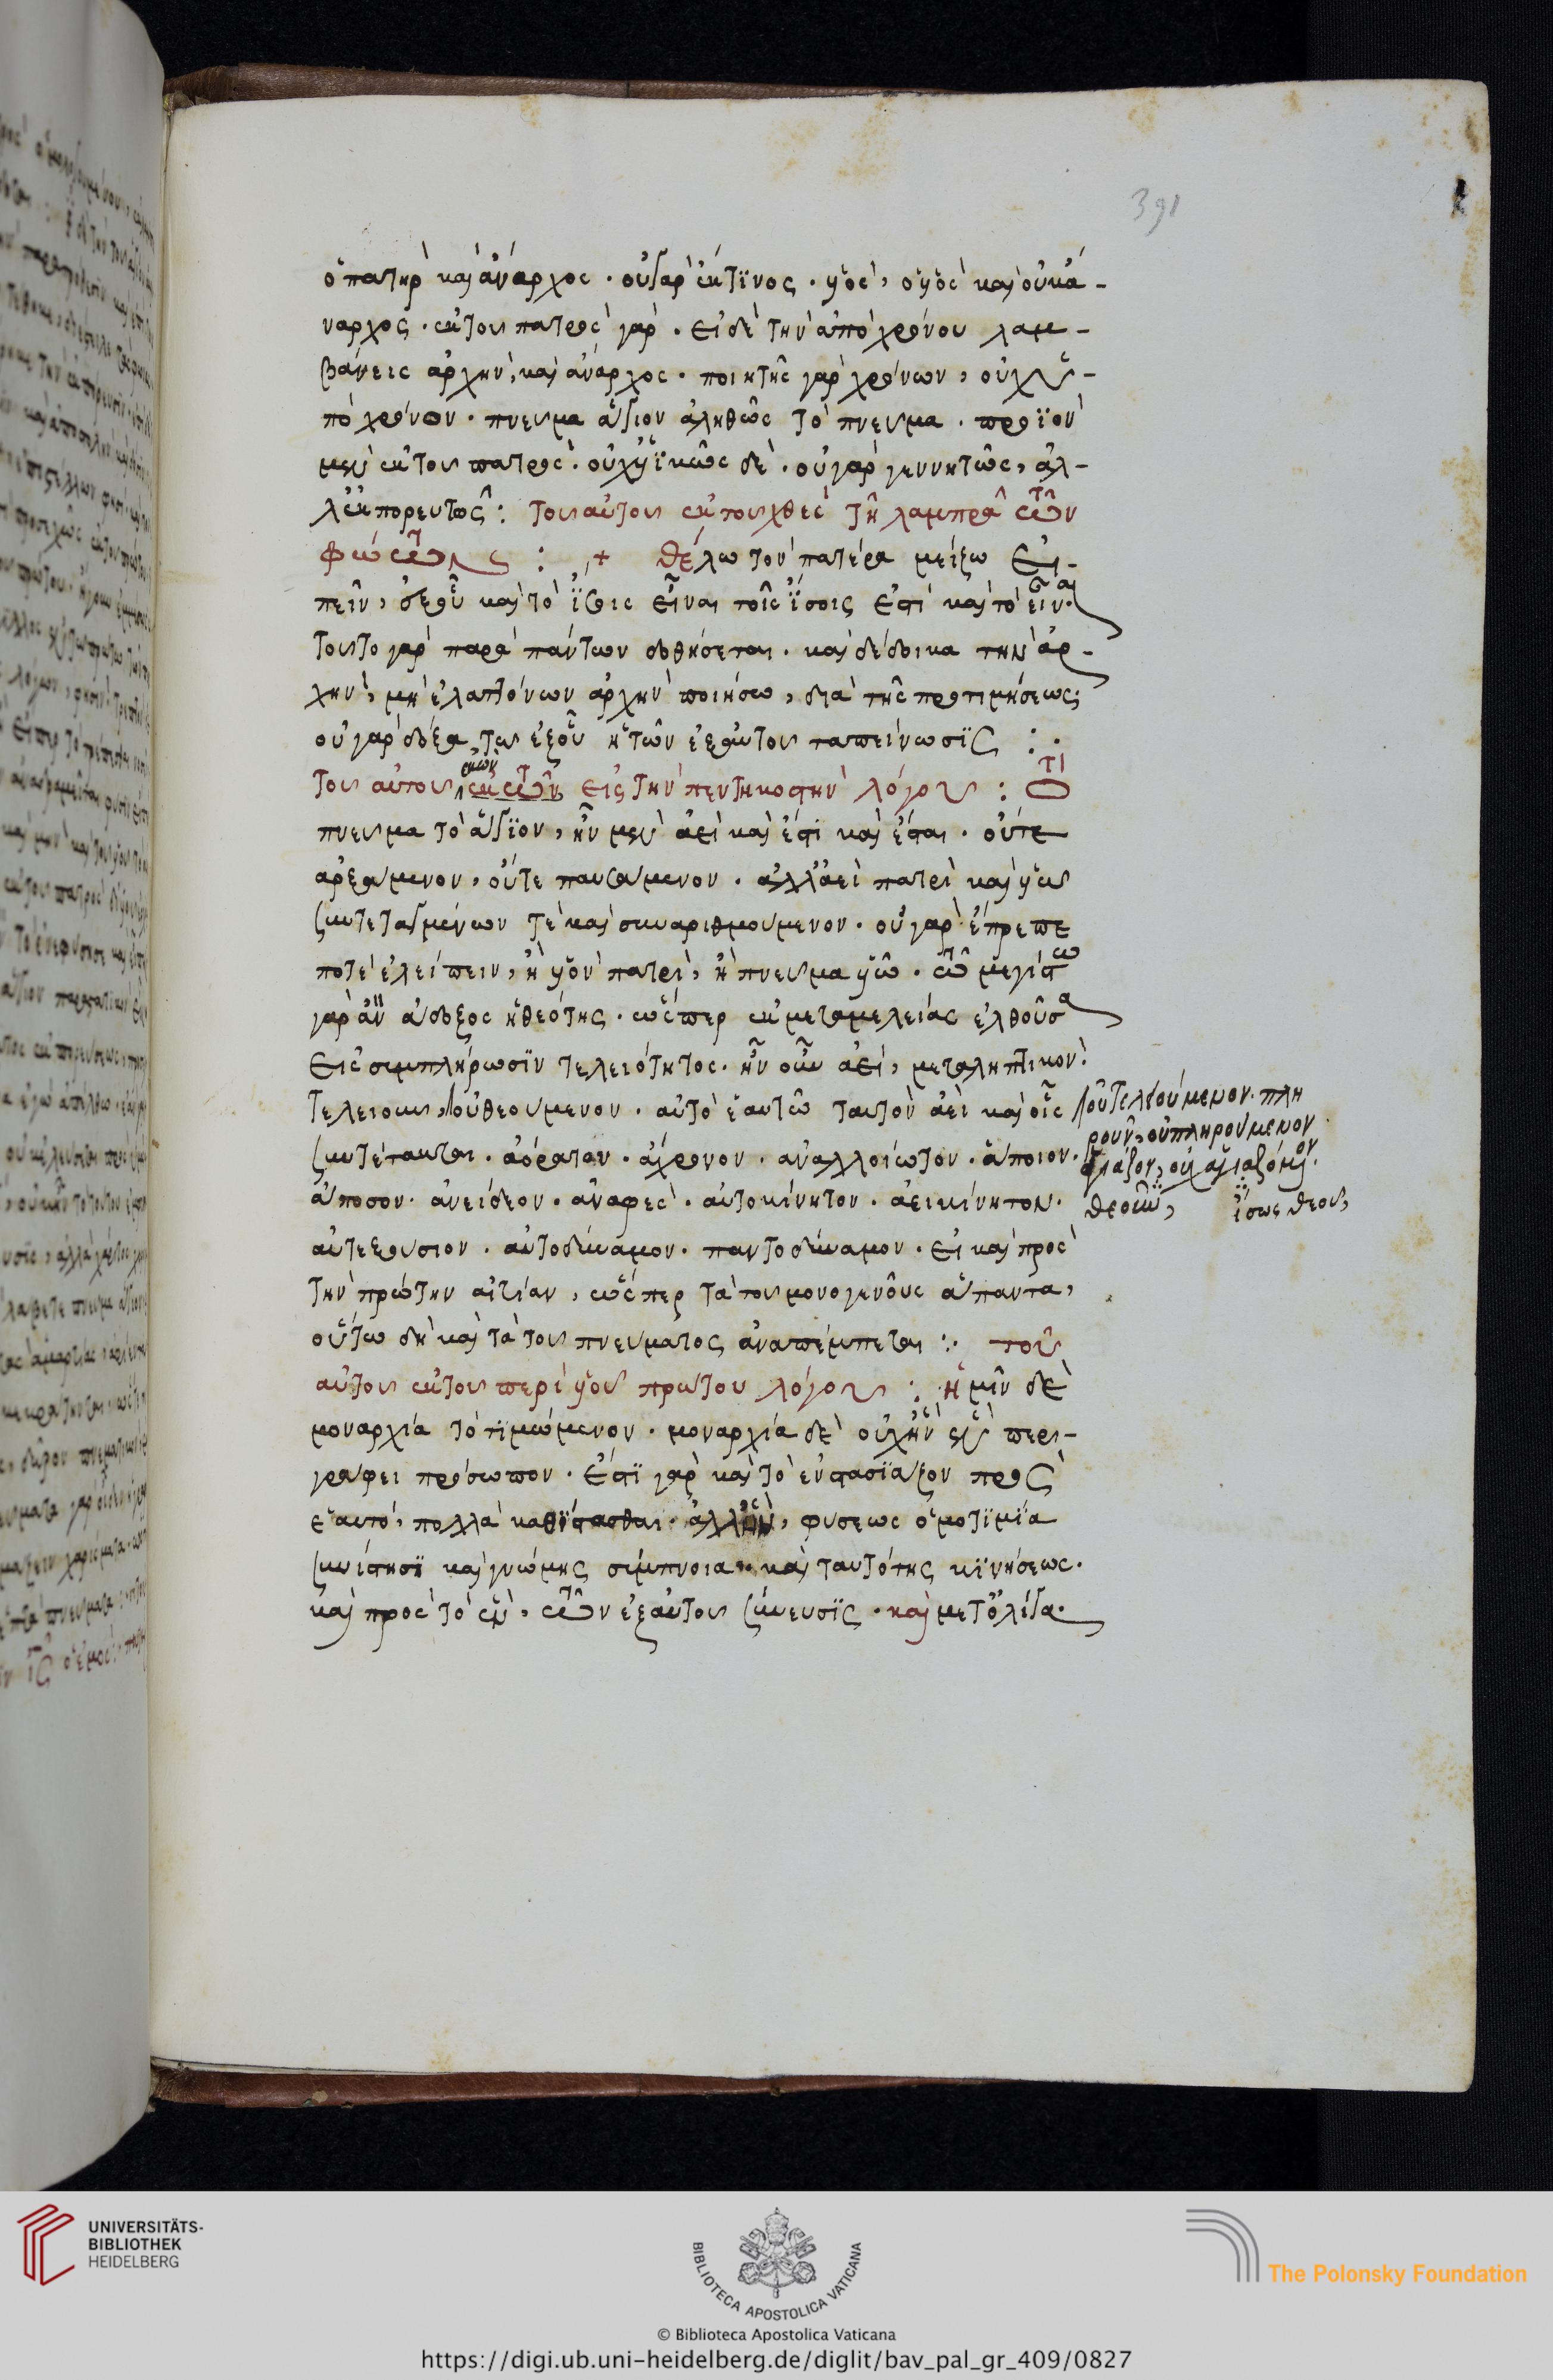 391
ὁ πατὴρ καὶ ἄναρχος · οὐ γὰρ ἔκ τινος · υἱὸς, ὁ υἱὸς καὶ οὐκ ἄ-
ναρχος · ἐκ τοῦ πατρὸς γάρ · εἰ δὲ τὴν ἀπὸ χρόνου λαμ-
βάνεις ἀρχὴν, καὶ ἄναρχος · ποιητὴς γὰρ χρόνων, οὐχ ὑ-
πὸ χρόνον · πνεῦμα ἅγιον ἀληθῶς τὸ πνεῦμα · προϊὸν
μὲν ἐκ τοῦ πατρὸς · οὐχ υἱϊκῶς δὲ · οὐ γὰρ γεννητῶς, ἀλ-
λ' ἐκπορευτῶς : τοῦ αὐτοῦ ἐκ τοῦ χθὲς τῇ λαμπρᾷ τῶν
φώτων : + θέλω τὸν πατέρα μείζω εἰ-
πεῖν, ἐξ οὗ καὶ τὸ ἴσοις εἶναι τοῖς ἴσοις ἐστὶ καὶ τὸ εἶναι ·
τοῦτο γὰρ παρὰ πάντων δοθήσεται · καὶ δέδοικα τὴν ἀρ-
χὴν, μὴ ἐλαττόνων ἀρχὴν ποιήσω, διὰ τῆς προτιμήσεως ;
οὐ γὰρ δόξα τῷ ἐξ οὗ ἡ τῶν ἐξ αὐτοῦ ταπείνωσις :·
τοῦ αὐτοῦ ἐκ τῶν εἰς τὴν πεντηκοστὴν λόγου : τὸ
πνεῦμα τὸ ἅγιον, ἦν μὲν ἀεὶ καὶ ἔστι καὶ ἔσται · οὔτε
ἀρξάμενον, οὔτε παυσάμενον · ἀλλ' ἀεὶ πατρὶ καὶ υἱῷ
συντεταγμένον τὲ καὶ συναριθμούμενον · οὐ γὰρ ἔπρεπε
ποτὲ ἐλείπειν, ἢ υἱὸν πατρὶ, ἢ πνεῦμα υἱῷ · τῷ μεγίστῳ
γὰρ ἂν ἄδοξος ἡ θεότης · ὥσπερ ἐκ μεταμελείας ἐλθοῦσα
εἰς συμπλήρωσιν τελειότητος · ἦν οὖν ἀεὶ, μεταληπτικόν ·
τελειοῦν, οὐ θεούμενον · αὐτὸ ἑαυτῷ ταυτὸν ἀεὶ καὶ οἷς
συντέτακται · ἀόρατον · ἄχρονον · ἀναλλοίωτον · ἄποιον ·
ἄποσον · ἀνείδεον · ἀναφὲς · αὐτοκίνητον · ἀεικίνητον ·
αὐτεξούσιον · αὐτοδύναμον · παντοδύναμον · εἰ καὶ πρὸς
τὴν πρώτην αἰτίαν, ὥσπερ τὰ τοῦ μονογενοῦς ἅπαντα,
οὕτω δὴ καὶ τὰ τοῦ πνεύματος ἀναπέμπεται :· τοῦ
αὐτοῦ ἐκ τοῦ περὶ υἱοῦ πρώτου λόγου : ἡμῖν δὲ
μοναρχία τὸ τιμώμενον · μοναρχία δὲ οὐχ ἣν ἓν περι-
γράφει πρόσωπον · ἔστι γὰρ καὶ τὸ ἓν στασιάζον πρὸς
ἑαυτό, πολλὰ καθίστασθαι · ἀλλ' ἣν, φύσεως ὁμοτιμία
συνίστησι καὶ γνώμης σύμπνοια · καὶ ταυτότης κινήσεως ·
καὶ πρὸς τὸ ἓν, τῶν ἐξ αὐτοῦ σύνευσις · καὶ μετ' ὀλίγα ·
οὐ τελειούμενον · πλη
ροῦν, οὐ πληρούμενον
ἁγιάζον, οὐχ ἁγιαζόμενον ·
θεοῦν, ἴσως θεοῦν,
UNIVERSITÄTS-
BIBLIOTHEK
HEIDELBERG
BIBLIOTECA APOSTOLICA VATICANA
The Polonsky Foundation
© Biblioteca Apostolica Vaticana
https://digi.ub.uni-heidelberg.de/diglit/bav_pal_gr_409/0827